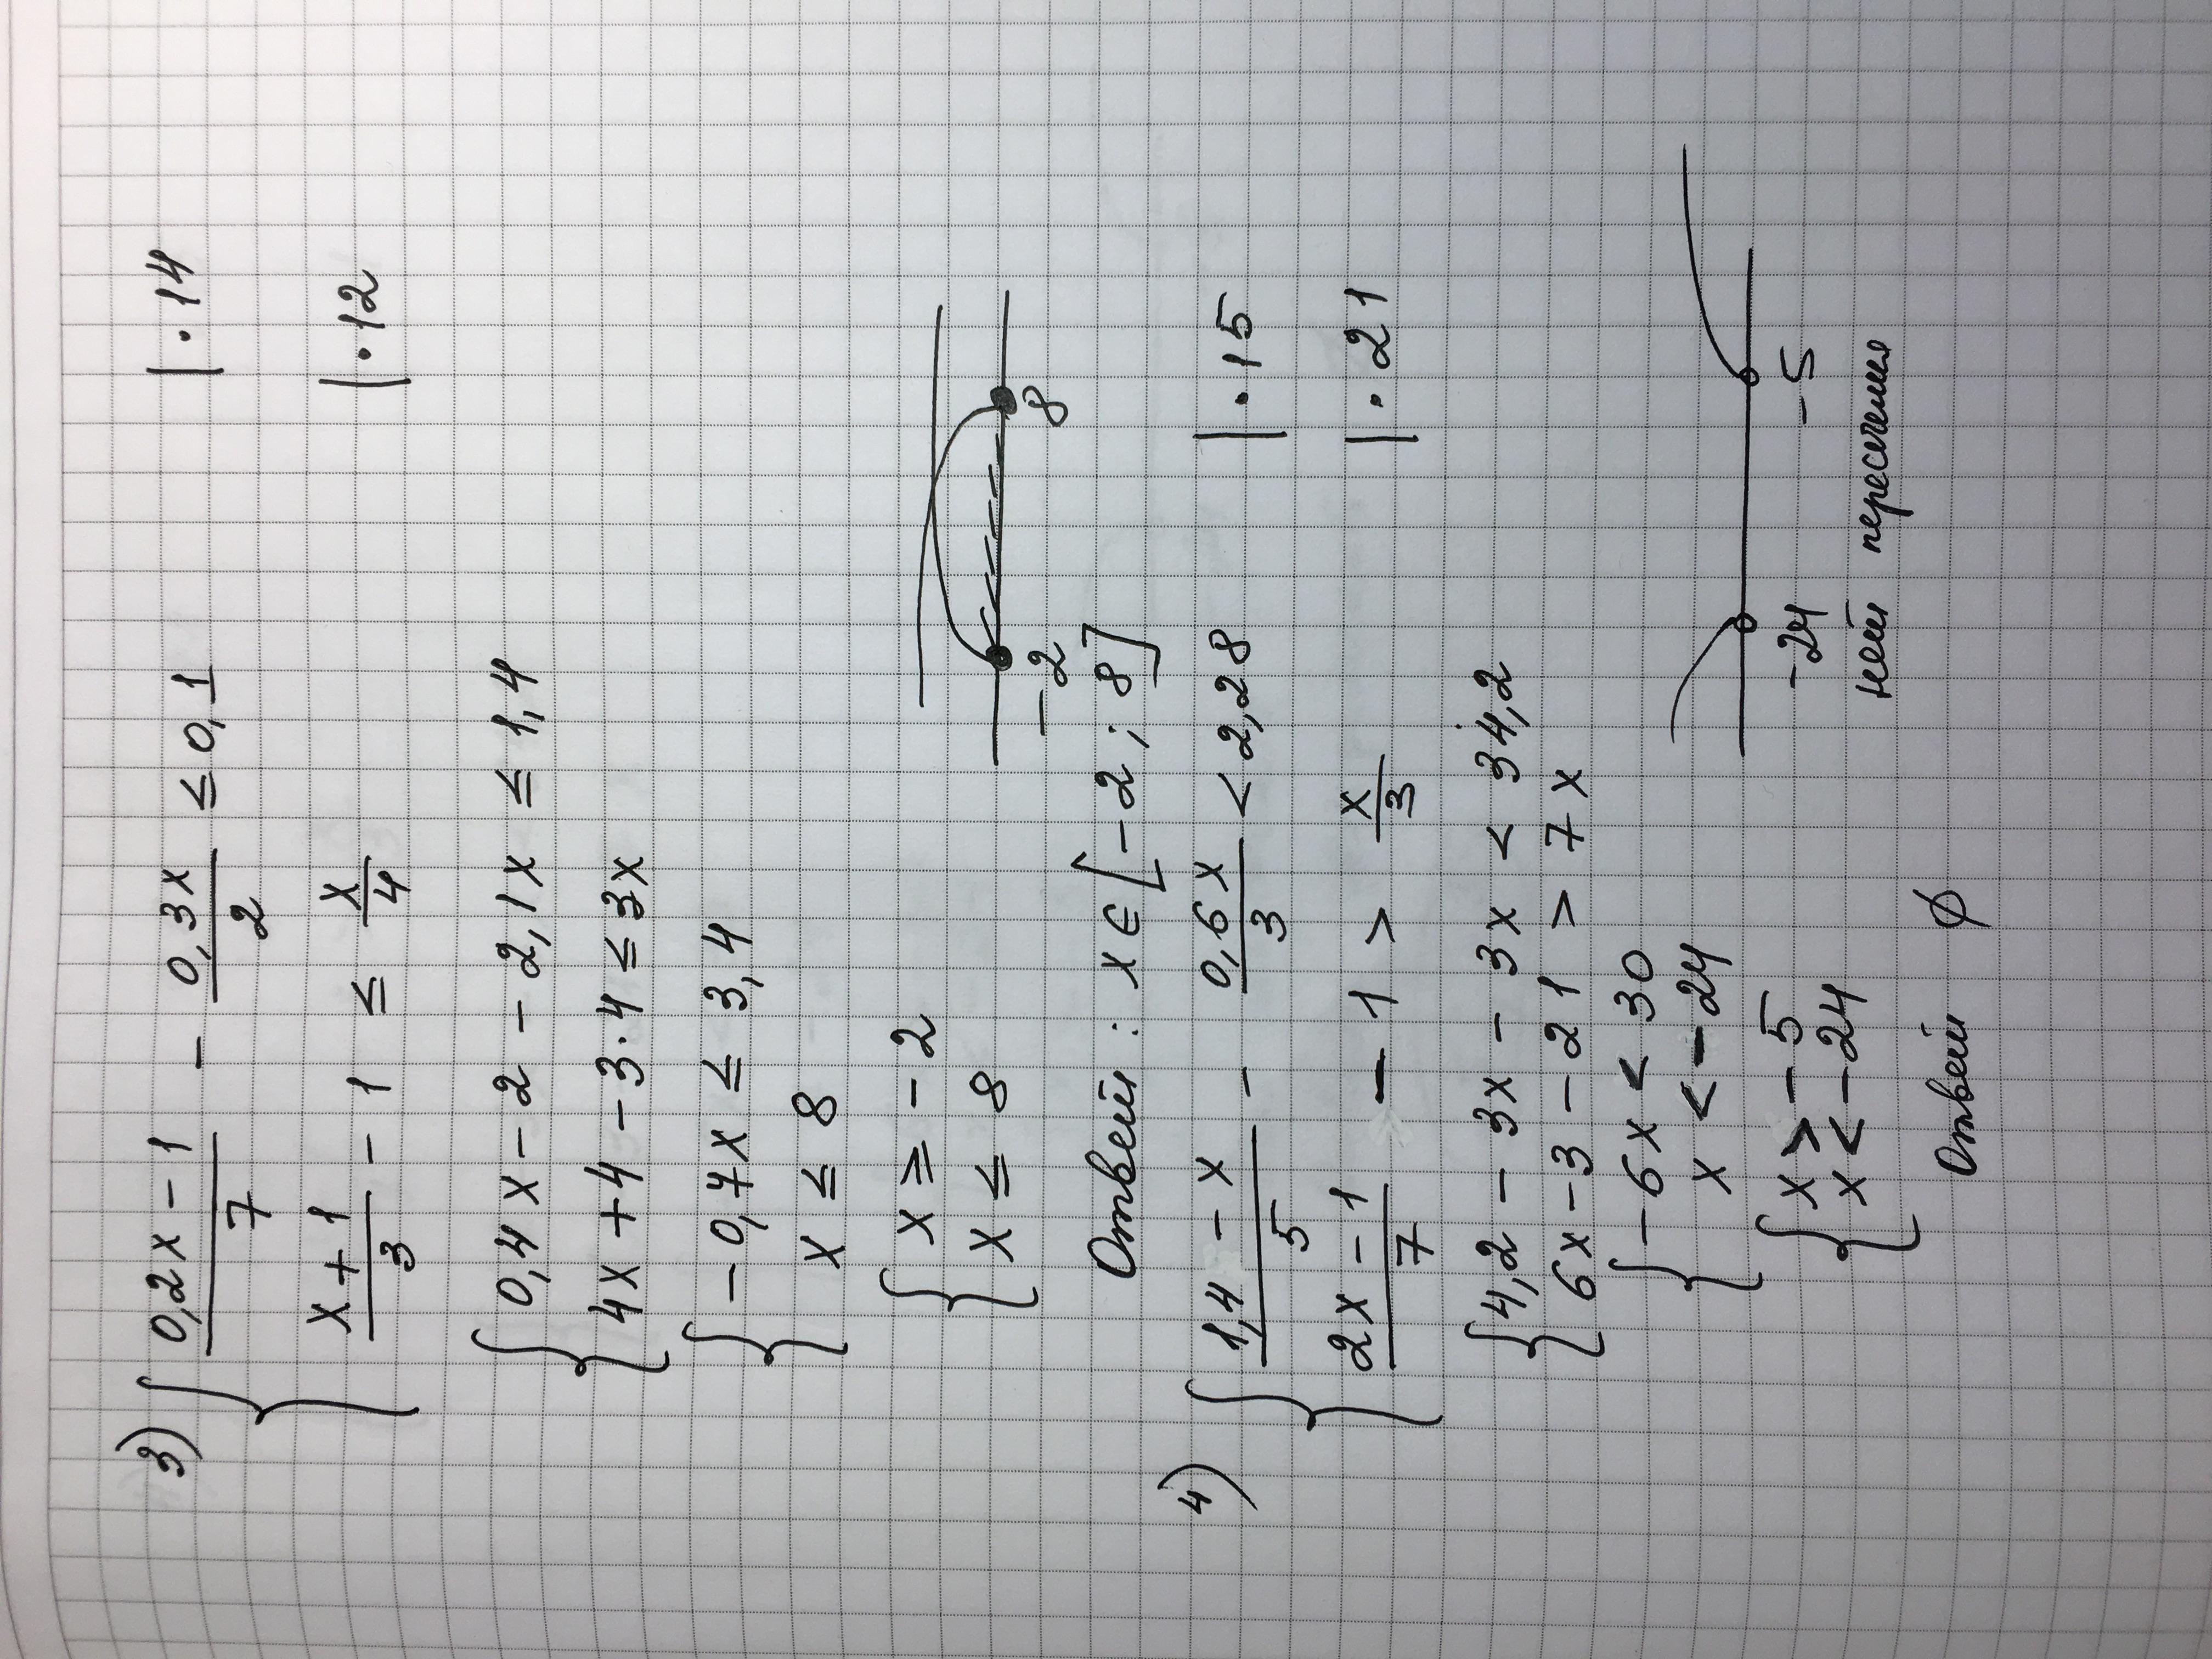 3) { (0,2x - 1)/7 - 0,3x/2 ≤ 0,1 | · 14
(x + 1)/3 - 1 ≤ x/4 | · 12
{ 0,4x - 2 - 2,1x ≤ 1,4
4x + 4 - 3·4 ≤ 3x
{ -0,7x ≤ 3,4
x ≤ 8
{ x ≥ -2
x ≤ 8
-2 8
Ответ : x ∈ [-2 ; 8]
4) { (1,4 - x)/5 - 0,6x/3 < 2,28 | · 15
(2x - 1)/7 - 1 > x/3 | · 21
{ 4,2 - 3x - 3x < 34,2
6x - 3 - 21 > 7x
{ -6x < 30
x < -24
{ x > -5
x < -24
-24 -5
нет пересечения
Ответ ∅